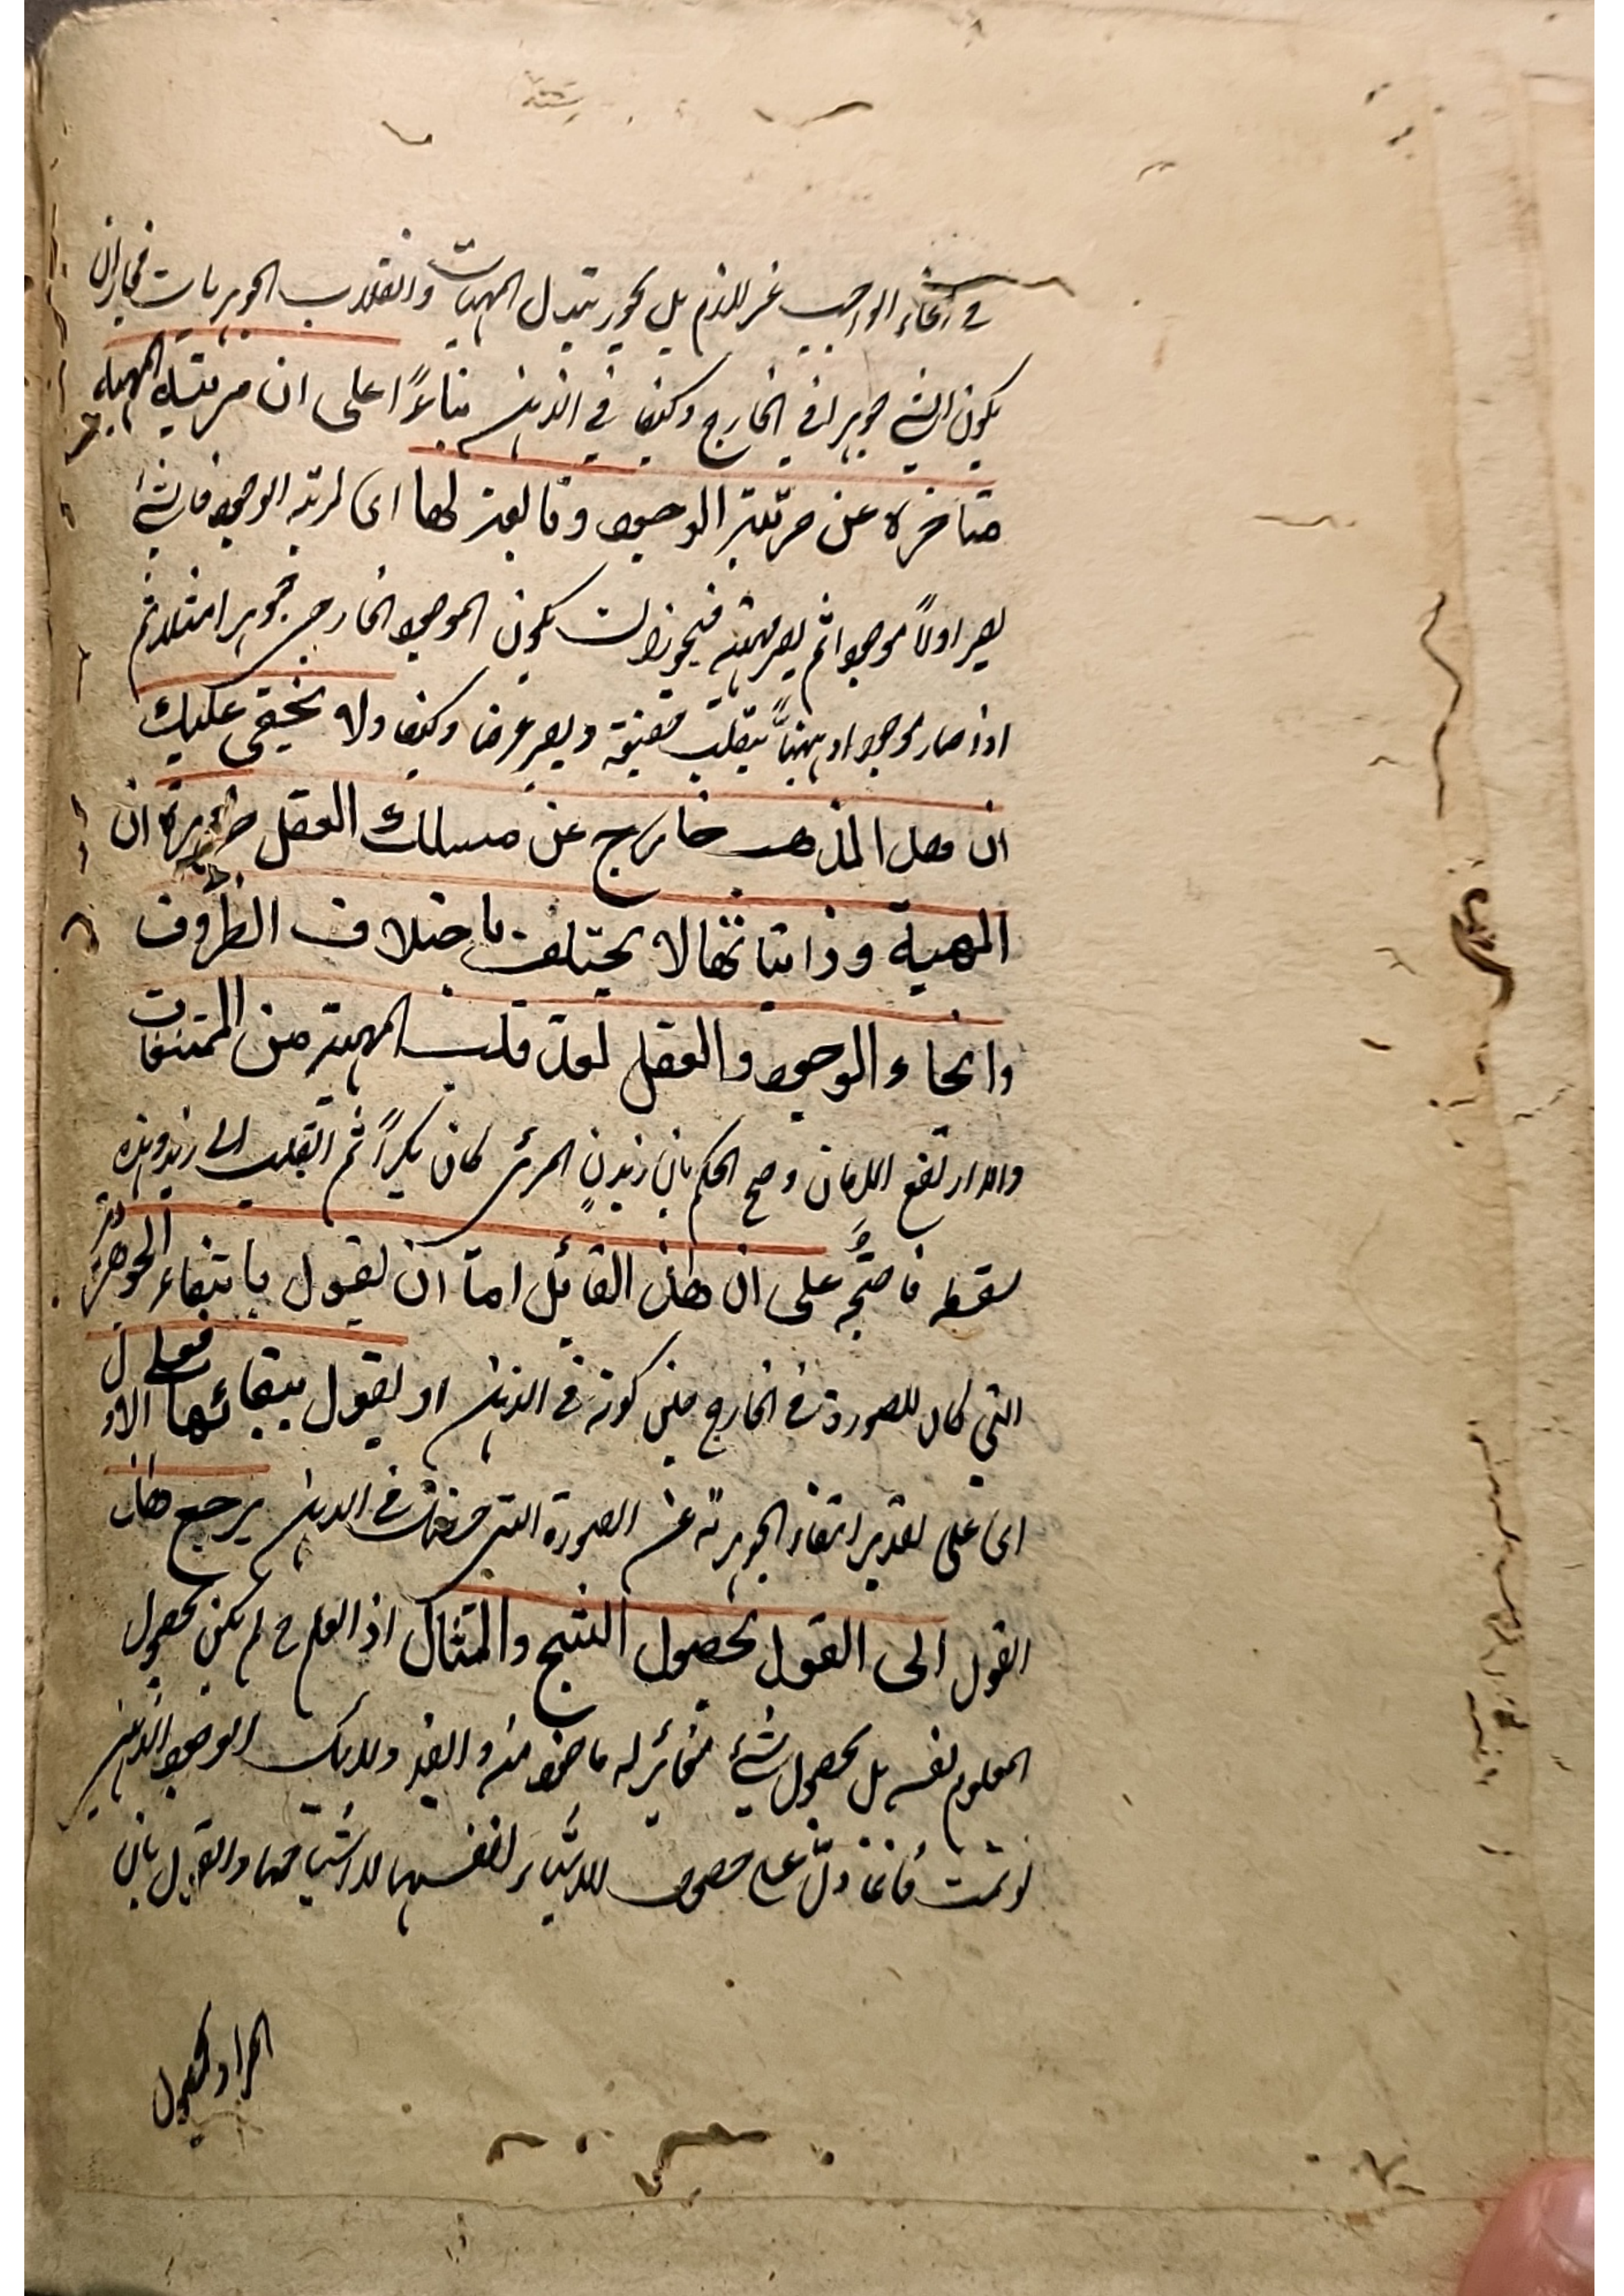 في انحاء الواجب غير لازم بل يجوز تبدل المهيات وانقلاب الجوهريات فجاز ان
يكون الشي جوهرا في الخارج وكيفا في الذهن بناءً ا على ان مرتبة المهية
متاخرة عن مرتبة الوجود وتابعة لها اى لمرتبة الوجود فالشئ
يصير اولاً موجودا ثم يصير مهية فيجوز ان يكون الموجود الخارجى جوهرا مثلا ثم
اذا صار موجودا ذهنياً ينقلب حقيقة ويصير عرضا وكيفا ولا يخفى عليك
ان هذا المذهب خارج عن مسلك العقل ضرورة ان
المهية وذاتياتها لا يختلف باختلاف الظروف
وانحاء الوجود والعقل يعد قلب المهية من الممتنعات
والا ارتفع الامان وصح الحكم بان زيدنٍ المرئى كان بكراً ثم انقلب الى زيد وهذه
سفسطة فاحتج على ان هذا القائل اما ان يقول بانتفاء الجوهرية
التي كان للصورة في الخارج حين كونه في الذهن او يقول ببقائها فعلى الاول
اى على تقدير انتفاء الجوهرية عن الصورة التي حصلت في الذهن يرجع هذا
القول الى القول بحصول الشبح والمثال اذ العلم ح لم يكن بحصول
المعلوم نفسه بل بحصول شئ مغاير له ماخوذ منه و ايضا دلائل الوجود الذهني
لو تمت فانما دلّ على حصول الاشياء بانفسها لا باشباحها والقول بان
المراد بحصول